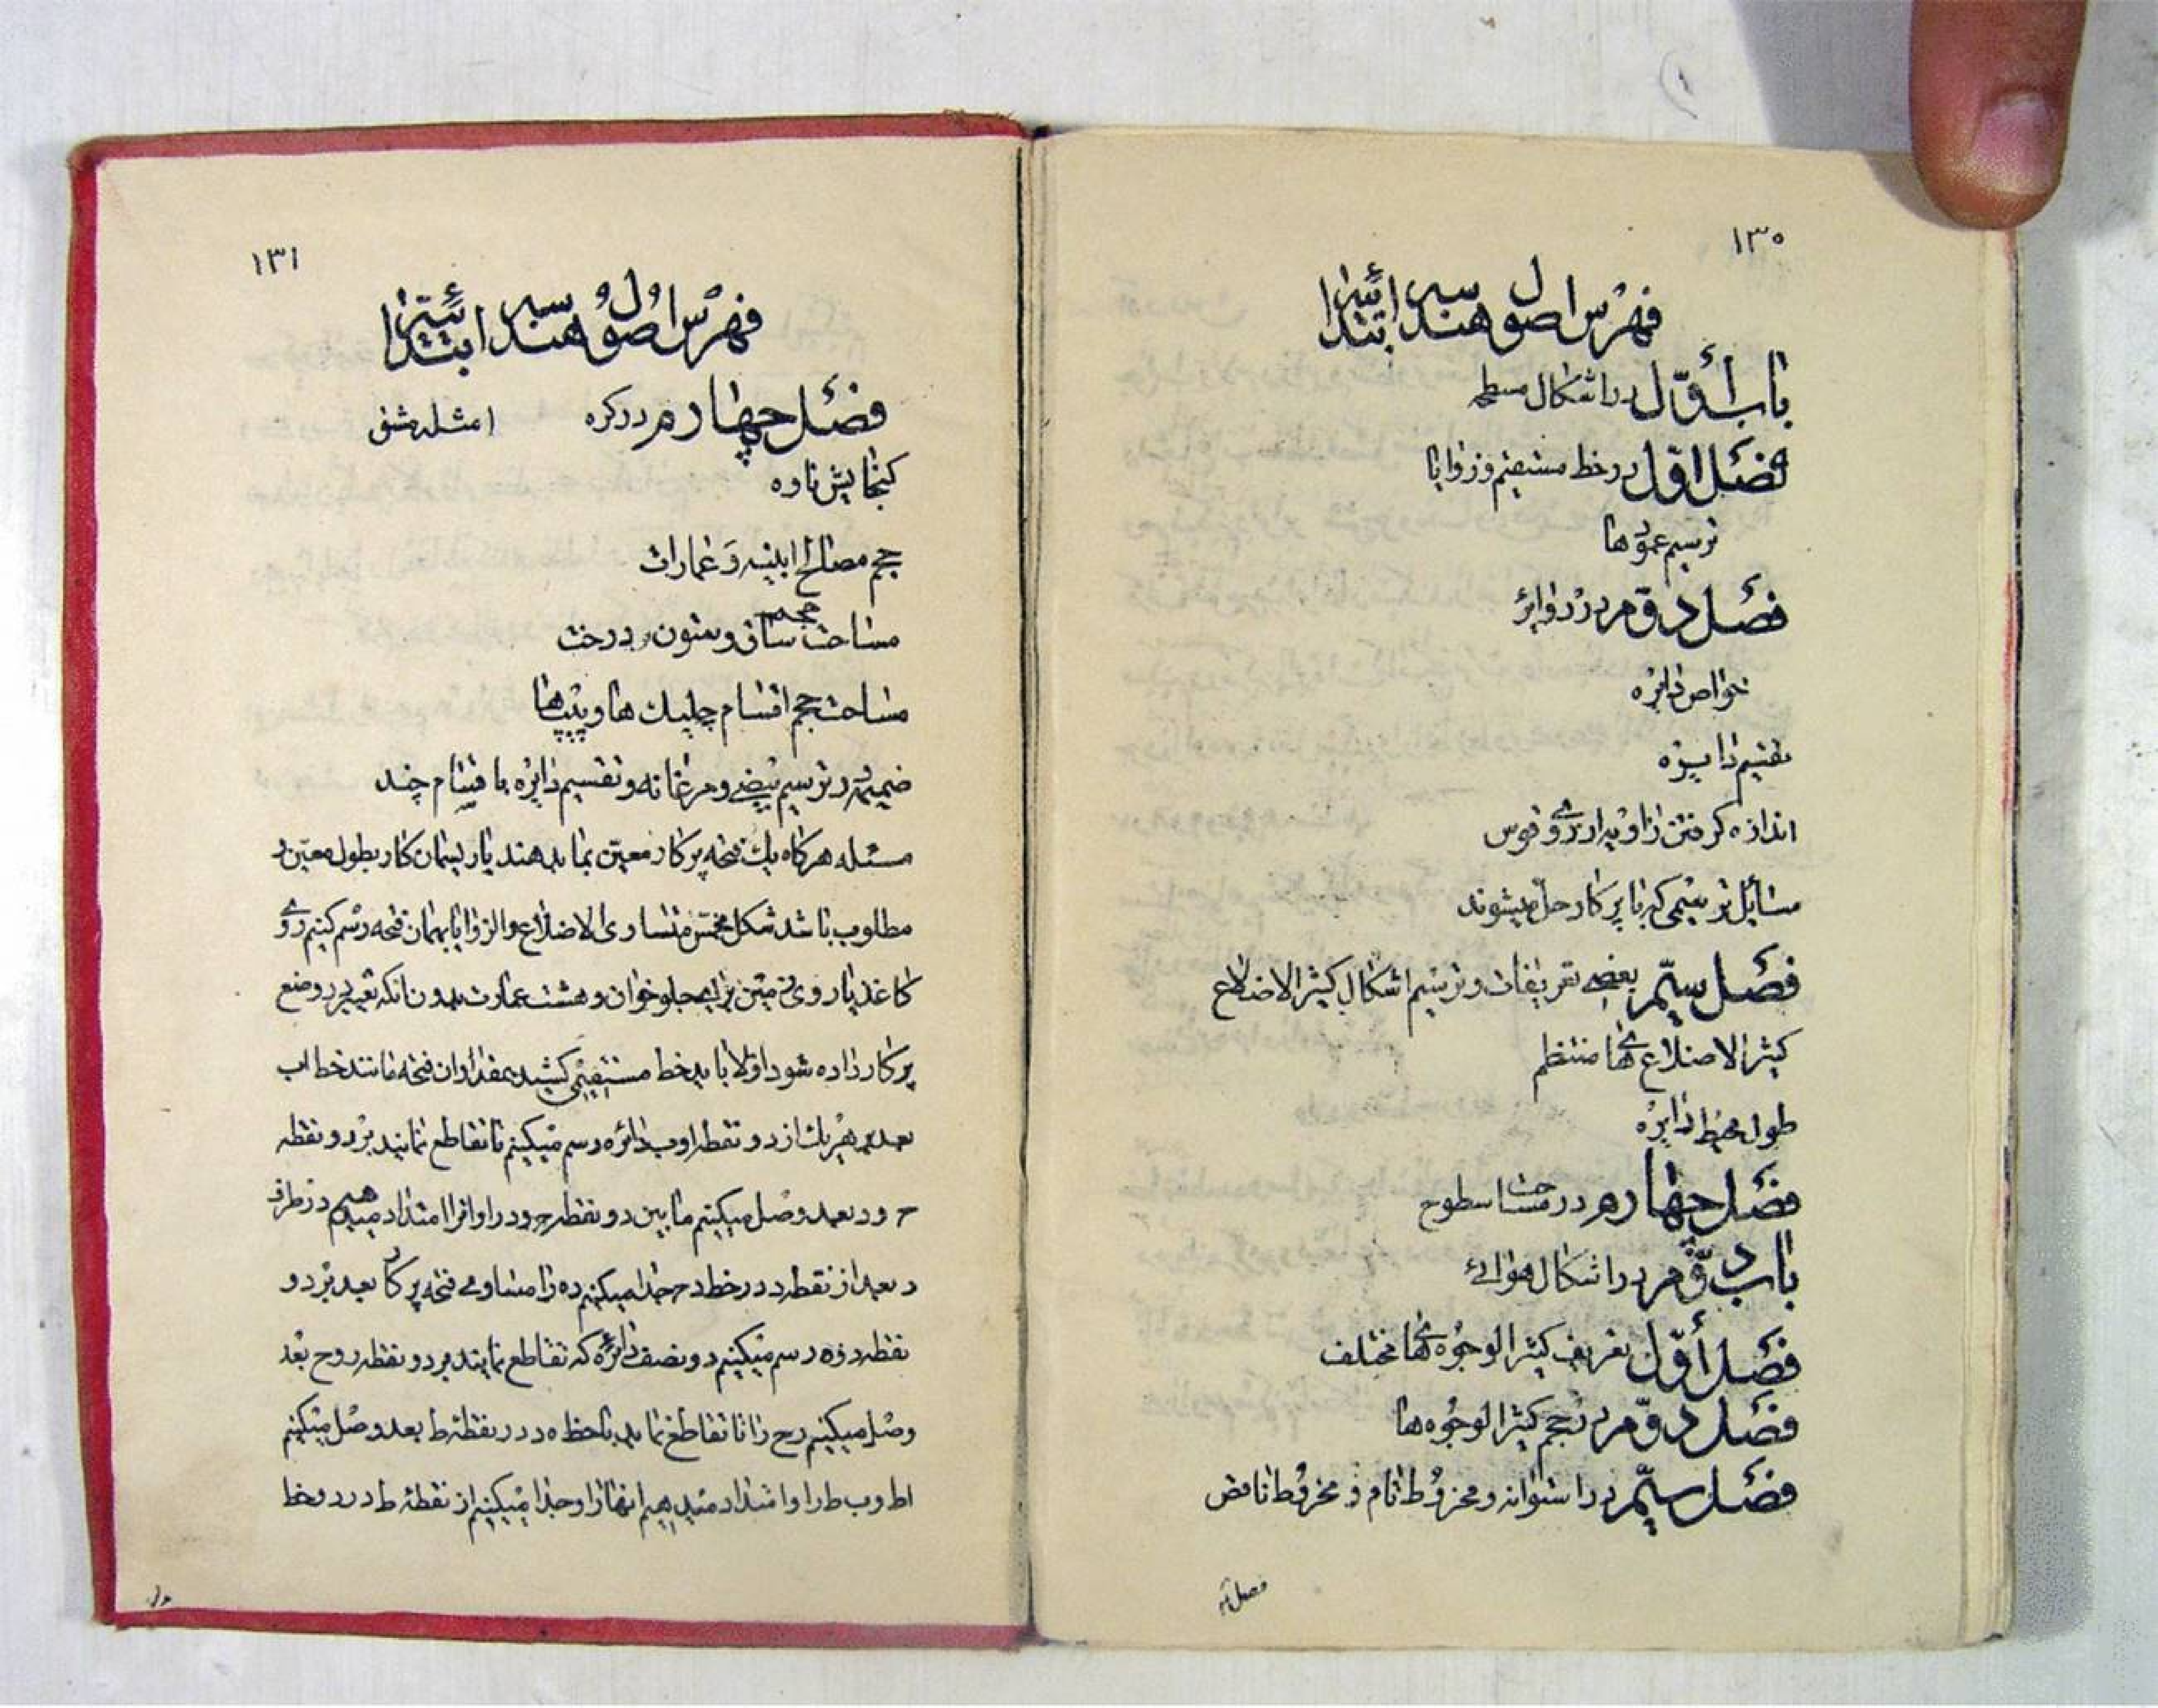 ۱۳۰
فهرس اصول هندسه ابتدائیه
باب اول در اشکال مسطحه
فصل اول در خط مستقیم و زوایا
ترسیم عمودها
فصل دوم در دوایر
خواص دایره
تقسیم دایره
اندازه گرفتن زاویه از روی قوس
مسائل ترسیمی که با پرکار حل میشوند
فصل سیم بعضی تعریفات و ترسیم اشکال کثیر الاضلاع
کثیر الاضلاع های منتظم
طول محیط دایره
فصل چهارم در مساحت سطوح
باب دوم در اشکال هوائی
فصل اول تعریف کثیر الوجوه های مختلف
فصل دوم در حجم کثیر الوجوه ها
فصل سیم در استوانه و مخروط تام و مخروط ناقص
فصل
۱۳۱
فهرس اصول هندسه ابتدائیه
فصل چهارم در کره امثله مشق
گنجایش ناوه
حجم مصالح ابنیه و عمارات
مساحت حجم ساق و ستون درخت
مساحت حجم اقسام چلیک ها و پیپها
ضمیمه در ترسیم بیضی و مرغانه و تقسیم دایره باقسام چند
مسئله هرگاه یک فتحه پرکار معین بما بدهند یا ریسمان کار بطول معین و
مطلوب باشد شکل مخمس متساوی الاضلاع و الزوایا بهمان فتحه رسم کنیم روی
کاغذ یا روی زمین برای جلوخوان و هشت عمارت بدون انکه تغییر در وضع
پرکار داده شود اولا باید خط مستقیمی کشید بمقدار ان فتحه مانند خط اب
بعد بر هر یک از دو نقطه ا و ب دائره رسم میکنیم تا تقاطع نمایند بر دو نقطه
ح و د بعد وصل میکنیم ما بین دو نقطه ح و د را و انرا امتداد میدهیم در طرف
د بعد از نقطه د در خط د ح جدا میکنیم ده را مساوی فتحه پرکار بعد بر دو
نقطه د و ه رسم میکنیم دو نصف دائره که تقاطع نمایند بر دو نقطه ر و ح بعد
وصل میکنیم ر ح را تا تقاطع نماید با خط ه د در نقطه ط بعد وصل میکنیم
اط و ب ط را و امتداد میدهیم انها را و جدا میکنیم از نقطه ط در دو خط